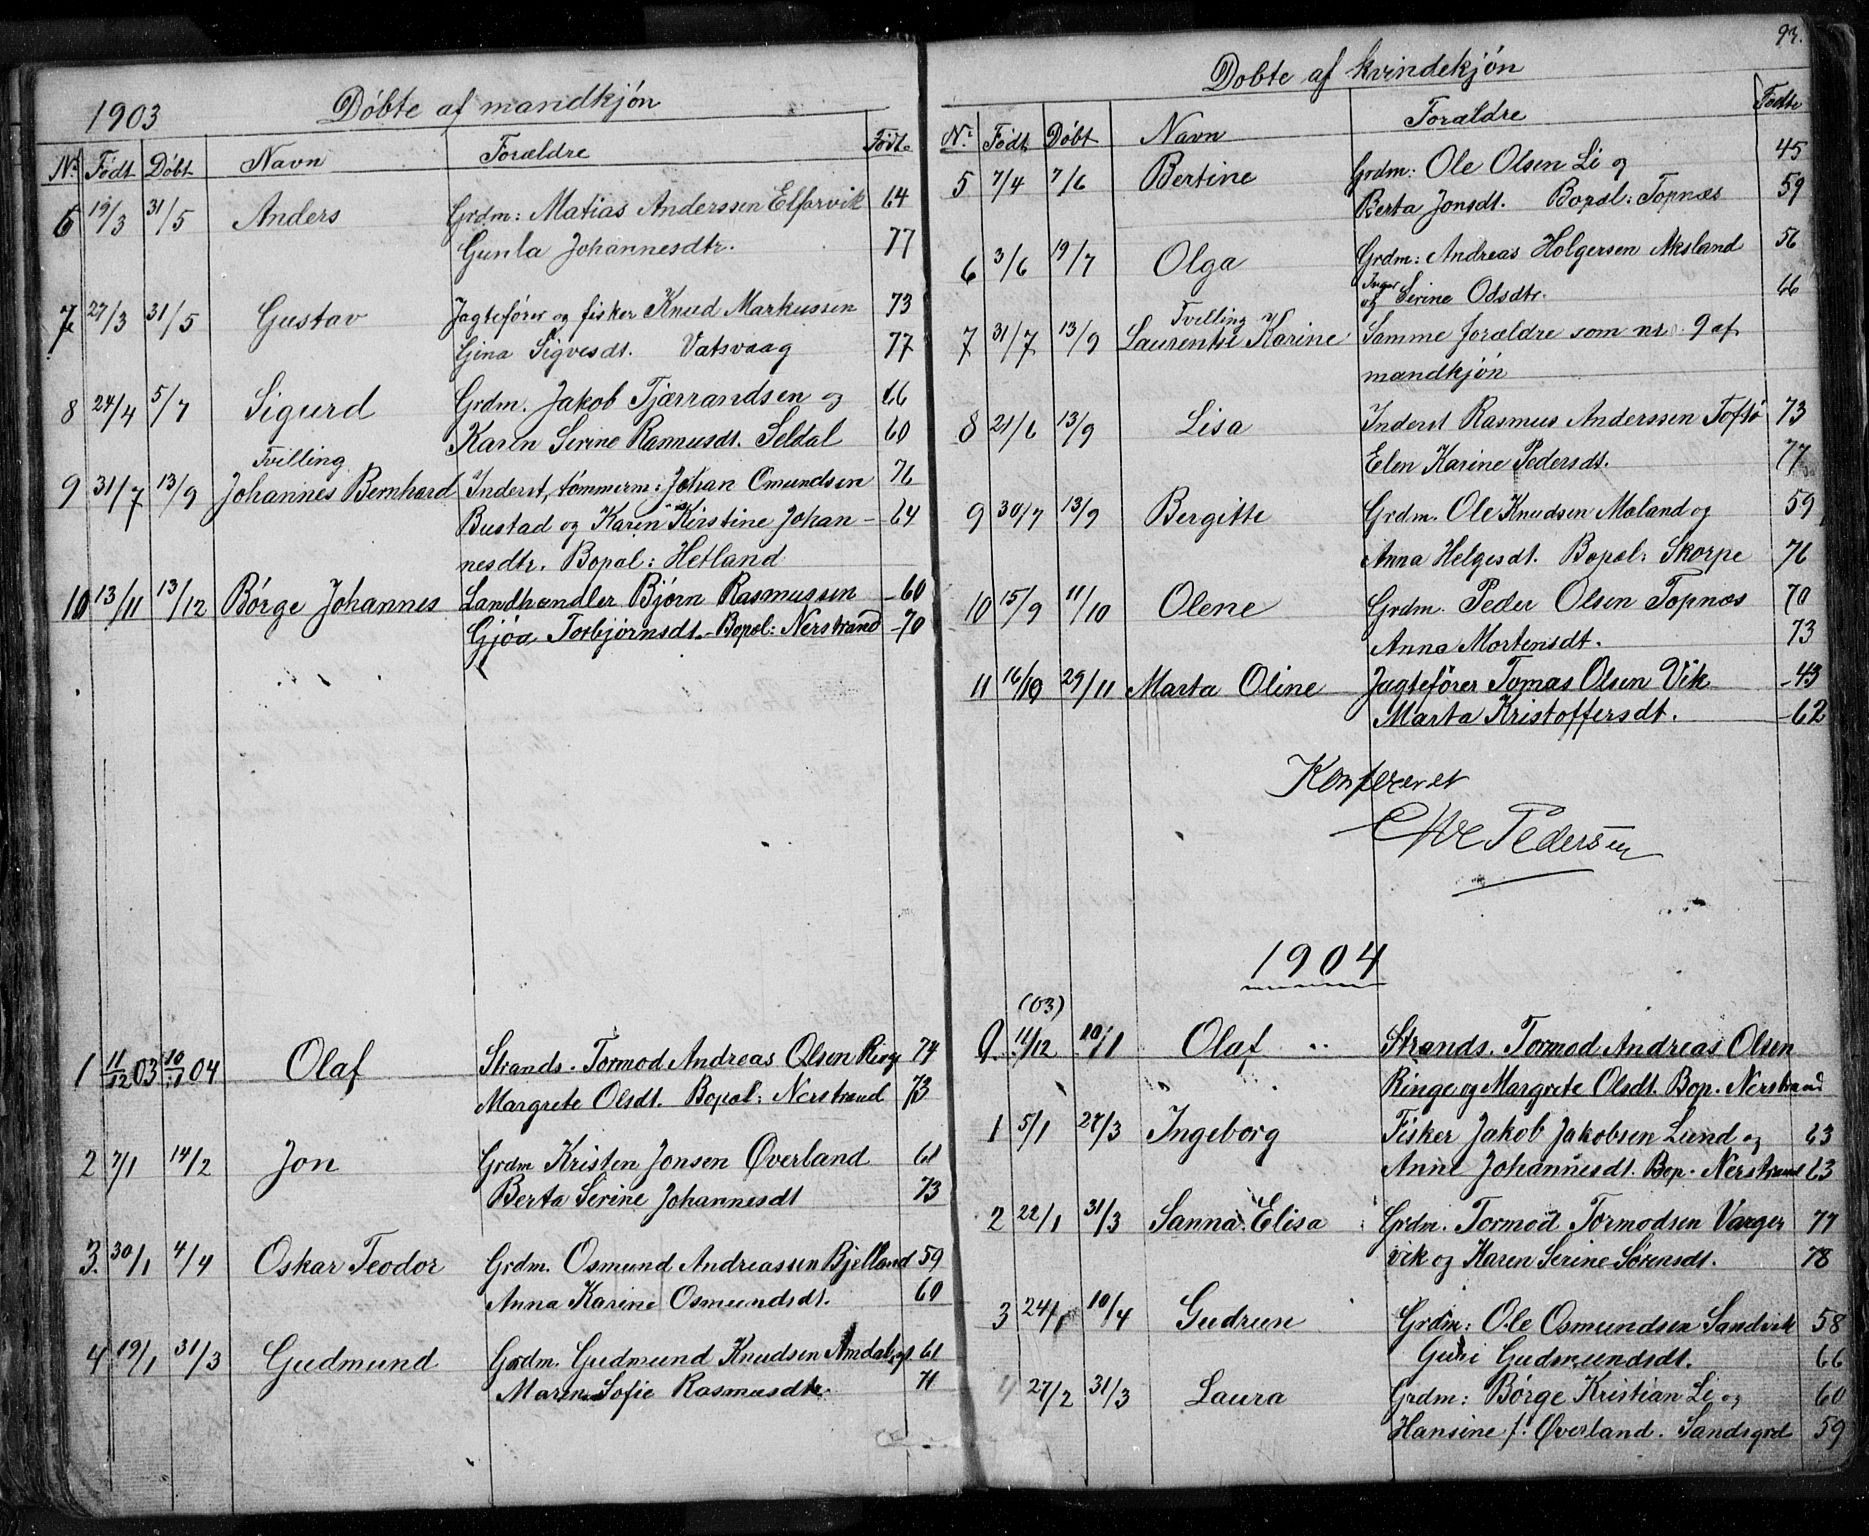 1903 Døbte af mandkjøn
Nr. Født Døbt Navn Forældre Fødte
6 19/3 31/5 Anders Grdm: Matias Anderssen Elfarvik 64
Gunla Johannesdtr. 77
7 27/3 31/5 Gustav Jagtefører og fisker Knud Markussen 73
Gina Sigvesdt. Vatsvaag 77
8 24/4 5/7 Sigurd Grdm. Jakob Tjærrandsen og 66
Karen Serine Rasmusdt. Seldal 60
Tvilling
9 31/7 13/9 Johannes Bernhard Inderst, tømmerm: Johan Omundsen 76
Bustad og Karen Kirstine Johan- 64
nesdtr. Bopal: Hetland
10 13/11 13/12 Børge Johannes Landhandler Bjørn Rasmussen -60
Gjøa Torbjørnsdt. - Bopal: Nerstrand -70
1 11/12 03 10/1 04 Olaf Strands. Tormod Andreas Olsen Ringe 74
Margrete Olsdt. Bopal: Nerstrand 73
2 7/1 14/2 Jon Grdm Kristen Jonsen Øverland 61
Berta Serine Johannesdt 73
3. 30/1 4/4 Oskar Teodor Grdm. Osmund Andreassen Bjelland 59
Anna Karine Osmundsdt. 60
4 19/1 31/3 Gudmund Grdm. Gudmund Knudsen Amdal og 61
Maren Sofie Rasmusdtr. 71
93.
Døbte af kvindekjøn
Nr. Født Døbt Navn Forældre Fødte
5 7/4 7/6 Bertine Grdm: Ole Olsen Li og 45
Berta Jonsdt. Bopal: Topnæs 59
6 3/6 19/7 Olga Grdm: Andreas Holgersen Aksland 56
Inger
og Serine Odsdtr. 66
Tvilling
7 31/7 13/9 Laurentse Karine Samme forældre som nr. 9 af
mandkjøn
8 21/6 13/9 Lisa Inderst Rasmus Anderssen Toftø 73
Elen Karine Pedersdt. 77
9 30/7 13/9 Bergitte Grdm. Ole Knudsen Moland og 59
Anna Helgesdt. Bopal: Skorpe 76
10 15/9 11/10 Olene Grdm. Peder Olsen Topnæs 70
Anna Mortensdt. 73
11 16/10 29/11 Marta Oline Jagtefører Tomas Olsen Vik -43
Marta Kristoffersdt. -62
Konfereret
Pedersen
1904
(03)
11/12 10/1 Olaf Strands. Tormod Andreas Olsen
Ringe og Margrete Olsdt. Bop. Nerstrand
1 5/1 27/3 Ingeborg Fisker Jakob Jakobsen Lund og 63
Anne Johannesdt. Bop. Nerstrand 63
2 22/1 31/3 Sanna Elisa Grdm. Tormod Tormodsen Varger 77
vik og Karen Serine Sørensdt. 78
3 24/1 10/4 Gudrun Grdm: Ole Osmundsen Sandvik 58
Guri Gudmundsdt. 66
4 27/2 31/3 Laura Grdm: Børge Kristian Li og 60
Hansine f. Øverland. Sandsgrd 59